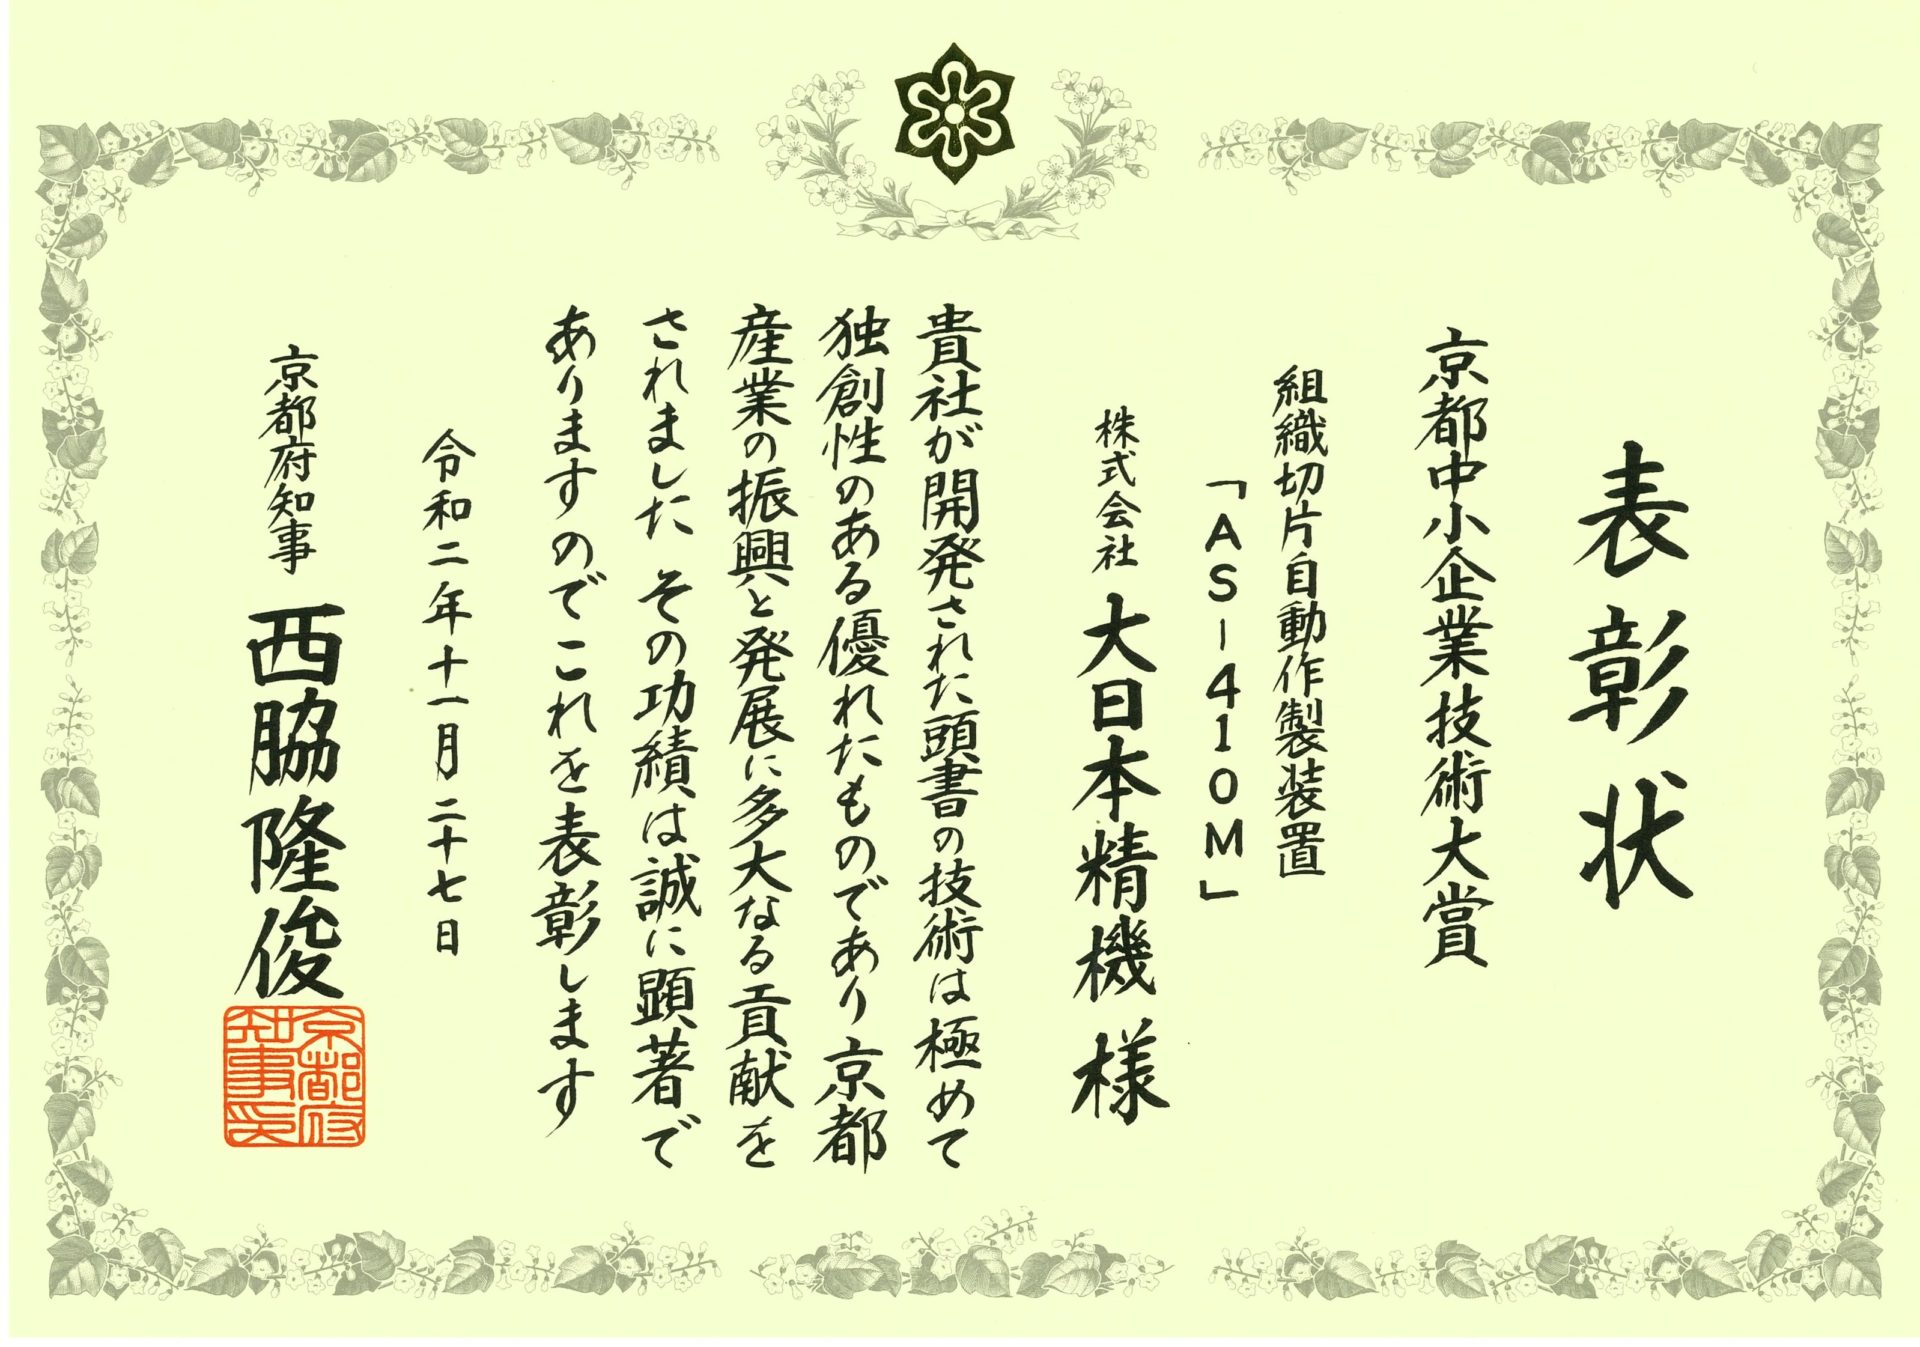 表彰状
京都中小企業技術大賞
組織切片自動作製装置
「AS-410M」
株式会社 大日本精機 様
貴社が開発された頭書の技術は極めて
独創性のある優れたものであり京都
産業の振興と発展に多大なる貢献を
されました その功績は誠に顕著で
ありますのでこれを表彰します
令和二年十一月二十七日
京都府知事 西脇隆俊
京都府
知事印